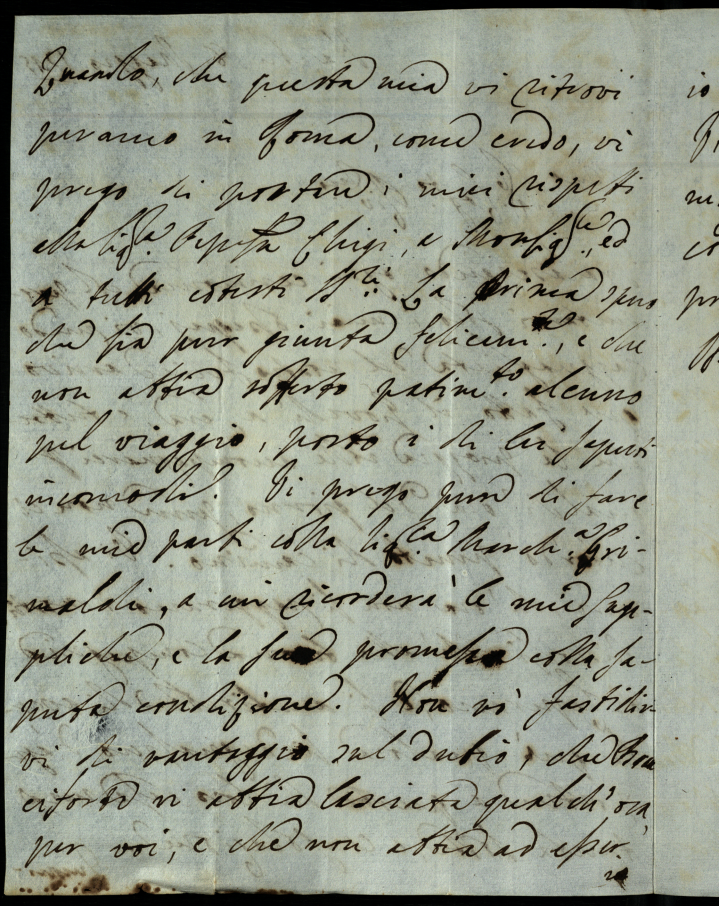 Quando, che questa mia vi ritrovi
peranco in Roma, come credo, vi
prego di portare i miei rispetti
alla Sig.ra Chigi, a Monsig.re, ed
a tutti cotesti SS.ri. La prima spero
che sia pur giunta felicem.te, e che
non abbia sofferto patim.to alcuno
nel viaggio, posto i di lei saputi
incomodi. Vi prego pure di fare
le mie parti colla Sig.ra March.a Gri-
maldi, a cui ricorderà le mie sup-
pliche, e la sua promessa colla sa-
puta condizione. Non vò fastidir-
vi di vantaggio sul dubio, che Bon
ciforte vi abbia lasciata qualch' ora
per voi, e che non abbia ad esser
io